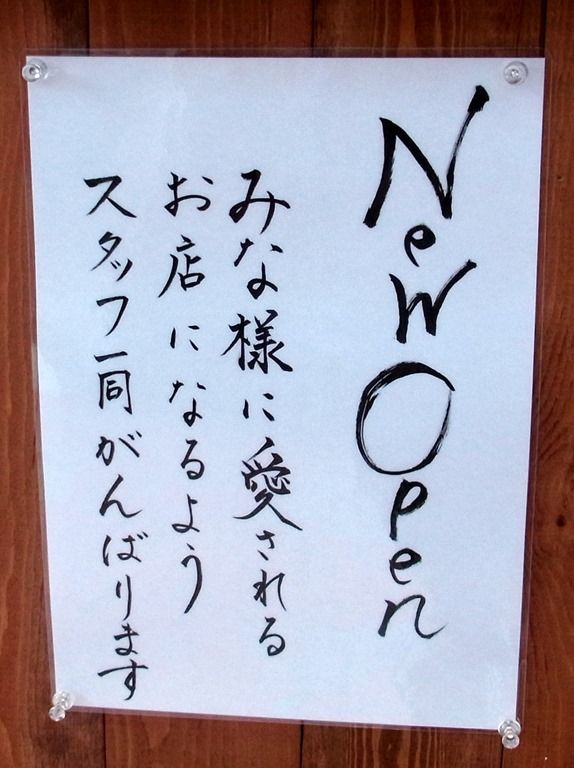 New Open
みな様に愛される
お店になるよう
スタッフ一同がんばります